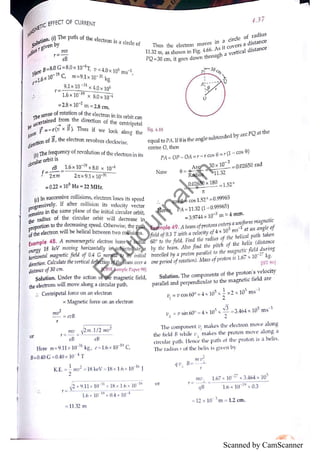 MAGNETIC EFFECT OF CURRENT
4.37
Solution. (i) The path of the electron is a circle of
radius r given by
r = mv / eB
Here B = 8.0 G = 8.0 × 10⁻⁴ T, v = 4.0 × 10⁶ ms⁻¹,
e = 1.6 × 10⁻¹⁹ C, m = 9.1 × 10⁻³¹ kg
r = 9.1 × 10⁻³¹ × 4.0 × 10⁶ / 1.6 × 10⁻¹⁹ × 8.0 × 10⁻⁴
= 2.8 × 10⁻² m = 2.8 cm.
The sense of rotation of the electron in its orbit can
be ascertained from the direction of the centripetal
force, F = -e(v × B). Thus if we look along the
direction of B, the electron revolves clockwise.
(ii) The frequency of revolution of the electron in its
circular orbit is
f = eB / 2π m = 1.6 × 10⁻¹⁹ × 8.0 × 10⁻⁴ / 2π × 9.1 × 10⁻³¹
= 0.22 × 10⁸ Hz = 22 MHz.
(iii) In successive collisions, electron loses its speed
progressively. If after collision its velocity vector
remains in the same plane of the initial circular orbit,
the radius of the circular orbit will decrease in
proportion to the decreasing speed. Otherwise, the path
of the electron will be helical between two collisions.
Example 48. A monoenergetic electron beam of initial
energy 18 keV moving horizontally is
horizontal magnetic field of 0.4 G normal to its initial
direction. Calculate the vertical deflection of the beam over a
distance of 30 cm. [CBSE Sample Paper 98]
Solution. Under the action of the magnetic field,
the electrons will move along a circular path.
∴ Centripetal force on an electron
= Magnetic force on an electron
mv² / r = evB
or r = mv / eB = √2m. 1/2 mv² / eB
Here m = 9.11 × 10⁻³¹ kg, e = 1.6 × 10⁻¹⁹ C,
B = 0.40 G = 0.40 × 10⁻⁴ T
K.E. = 1/2 mv² = 18 keV = 18 × 1.6 × 10⁻¹⁶ J
∴ r = √2 × 9.11 × 10⁻³¹ × 18 × 1.6 × 10⁻¹⁶ / 1.6 × 10⁻¹⁹ × 0.4 × 10⁻⁴
= 11.32 m
Thus the electron moves in a circle of radius
11.32 m, as shown in Fig. 4.66. As it covers a distance
PQ = 30 cm, it goes down through a vertical distance
30 cm
Fig. 4.66
equal to PA. If θ is the angle subtended by arc PQ at the
centre O, then
PA = OP - OA = r - r cos θ = r (1 - cos θ)
Now θ = 30 × 10⁻² / 11.32 = 0.02650 rad
= 0.02650 × 180 / π = 1.52°
cos 1.52° = 0.99965
PA = 11.32 (1 - 0.99965)
= 3.9744 × 10⁻³ m ≈ 4 mm.
Example 49. A beam of protons enters a uniform magnetic
field of 0.3 T with a velocity of 4 × 10⁵ ms⁻¹ at an angle of
60° to the field. Find the radius of the helical path taken
by the beam. Also find the pitch of the helix (distance
travelled by a proton parallel to the magnetic field during
one period of rotation). Mass of proton is 1.67 × 10⁻²⁷ kg.
Solution. The components of the proton's velocity
parallel and perpendicular to the magnetic field are
= v cos 60° = 4 × 10⁵ × 1/2 = 2 × 10⁵ ms⁻¹
= v sin 60° = 4 × 10⁵ × √3/2 = 3.464 × 10⁵ ms⁻¹
The component makes the electron move along
the field B while makes the proton move along a
circular path. Hence the path of the proton is a helix.
The radius r of the helix is given by
or r = 1.67 × 10⁻²⁷ × 3.464 × 10⁵ / 1.6 × 10⁻¹⁹ × 0.3
= 12 × 10⁻³ m = 1.2 cm.
Scanned by CamScanner